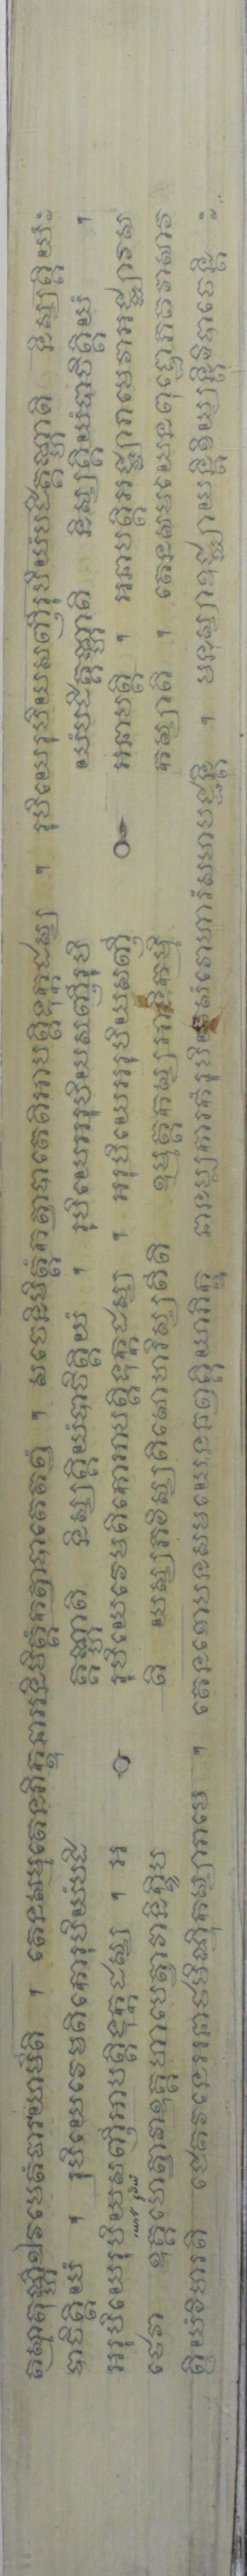 តស្មាតុណ្ហីឯវមេតំធារយាមីតិ ។ តេនសម្មតេនភិក្ខុនាអនិមិត្តំកត្វាបាតេតព្វំ ។ សចេនិមិត្តំកត្វាបាតេតិអាបត្តិទុក្កដស្ស ។ រូបិយេរូបិយសញ្ញីរូបិយំបដិគ្គណ្ហាតិ និស្សគ្គិយំ៖
បាចិត្តិយំ ។ រូបិយេវេមតិកោរូបិយំបដិ គ្គណ្ហាតិ និស្សគ្គិយំបាចិត្តិយំ ។ រូបិយេអរូបិយសញ្ញីរូបិ យំបដិគ្គណ្ហាតិ និស្សគ្គិយំបាចិត្តិយំ ។
អរូបិយេរូបិយសញ្ញីអាបត្តិទុក្កដស្ស ។ អ រូបិយេវេមតិកោអាបត្តិទុក្កដស្ស ។ អរូបិយេអរូបិយសញ្ញី អនាបត្តិ ។ អនាបត្តិអជ្ឈារាមេវាអជ្ឈាវស
ថេវា ឧគ្គហេត្វាវាឧគ្គហាបេត្វាវានិក្ខិប តិ យស្សភវិស្សតិសោហរិស្សតីតិ ឧម្មត្តកស្សអាទិកម្មិ កស្សាតិ ។ តេនសមយេនពុទ្ធោភគវាសាវ
ត្ថិយំវិហរតិ ជេតវនេអនាថបិណ្ឌិកស្សារាមេ ។ តេនខោបនសមយេនឆព្វគ្គិយាភិក្ខូ នានប្បការកំរូបិយសំវោហារំសមាបជ្ជន្តិ ។ មនុស្សាឧជ្ឈាយន្តិខិយ្យន្តិវិបាចេន្តិ ៖